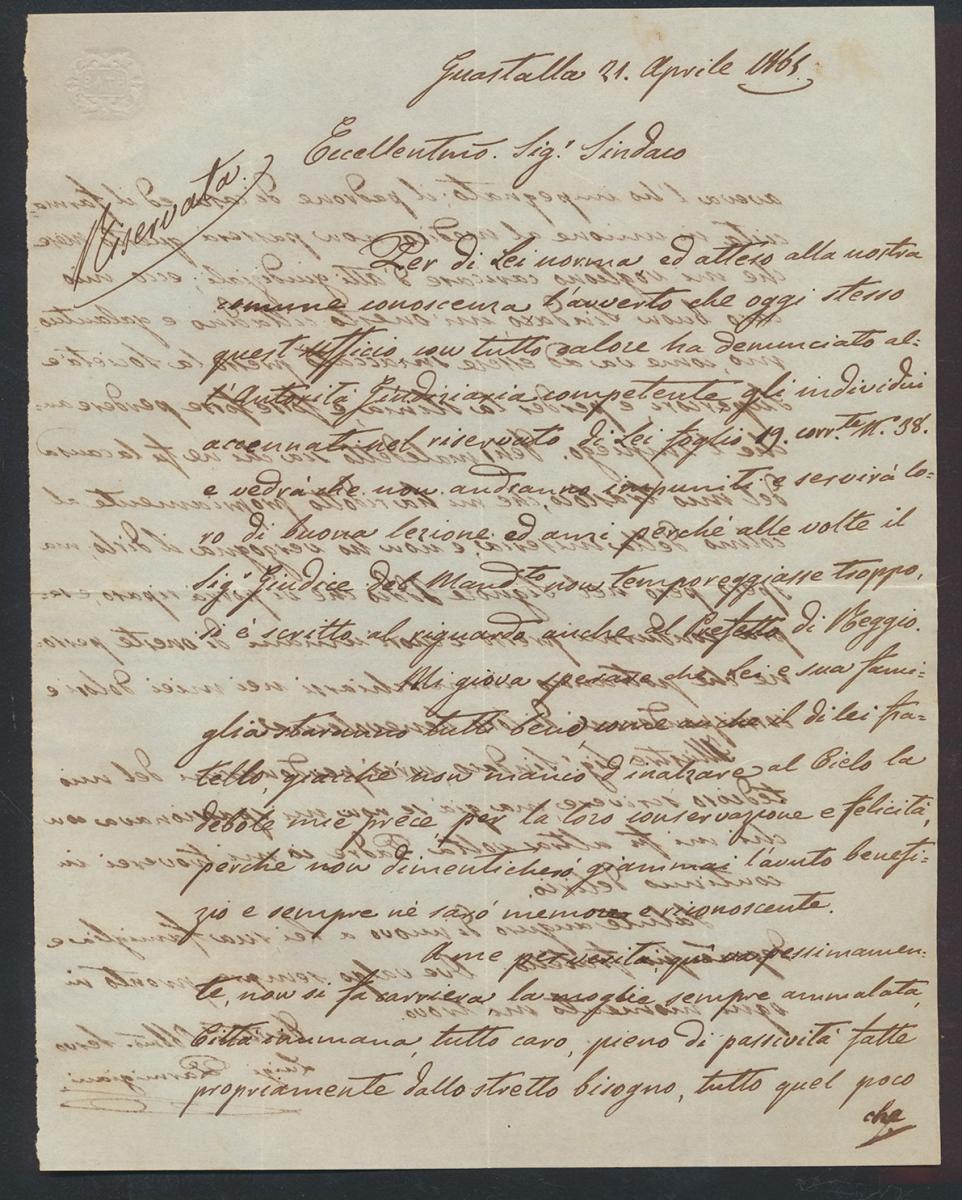 Guastalla 21. Aprile 1865.
Eccellentmo. Sigr. Sindaco
Riservata.
Per di Lei norma ed atteso alla nostra
comune conoscenza l'avverto che oggi stesso
quest'ufficio con tutto calore ha denunciato al-
l'Autorità Giudiziaria competente gli individui
accennati nel riservato di Lei foglio 19. corrte. N. 38.
e vedrà che non andranno impuniti e servirà lo-
ro di buona lezione ed anzi perché alle volte il
Sigr. Giudice del Mandto. non temporeggiasse troppo,
si è scritto al riguardo anche al Prefetto di Reggio.
Mi giova sperare che Lei e sua fami-
glia staranno tutti bene come anche il di lei fra-
tello, giacché non manco d'inalzare al Cielo la
debole mie prece per la loro conservazione e felicità,
perché non dimenticheró giammai l'avuto benefi-
zio e sempre nè saró memore e riconoscente.
A me per verità, quà va pessimamen-
te, non si fa carriera la moglie sempre ammalata,
Città inumana, tutto caro, pieno di passività fatte
propriamente dallo stretto bisogno, tutto quel poco
che